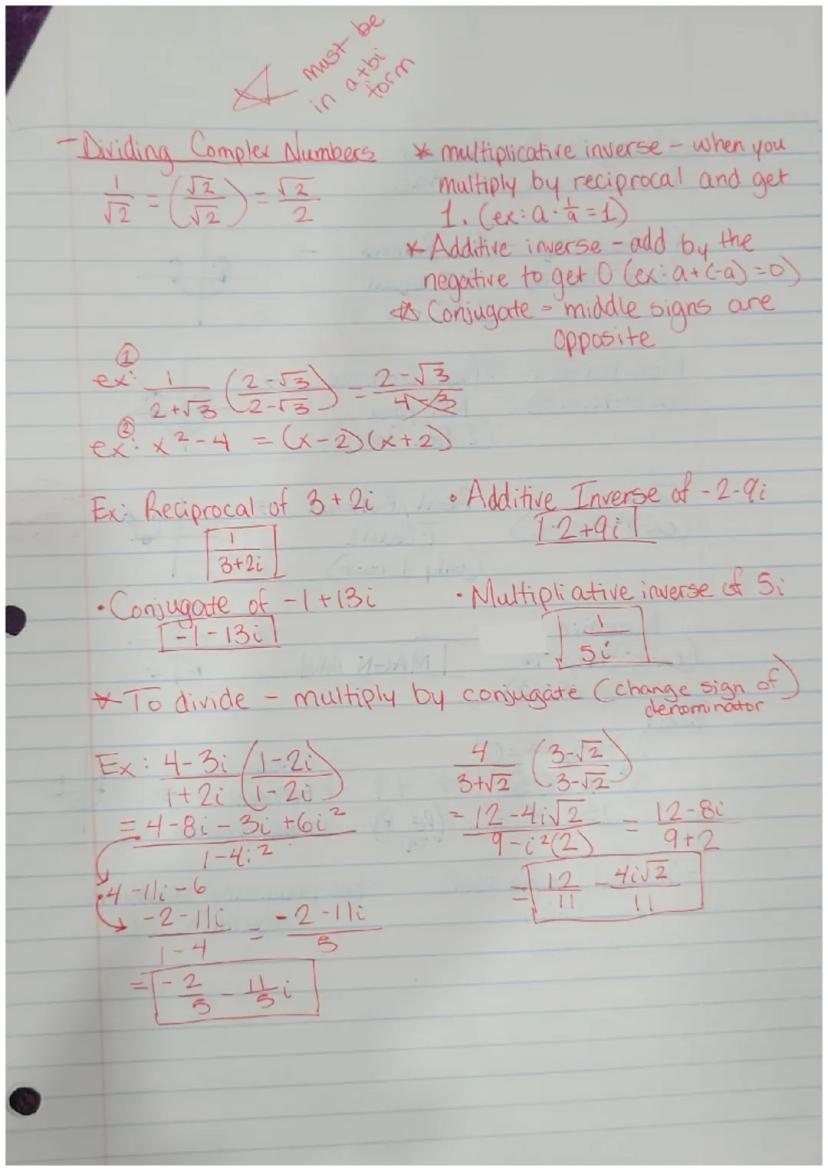 must be
in a+bi
form
- Dividing Complex Numbers
1/√2 = (√2/√2) = √2/2
* multiplicative inverse - when you
multiply by reciprocal and get
1. (ex: a · 1/a = 1)
* Additive inverse - add by the
negative to get 0 (ex: a + (-a) = 0)
* Conjugate - middle signs are
opposite
ex: ① 1/(2+√3) ((2-√3)/(2-√3)) = (2-√3)/(4-3)
ex: ② x² - 4 = (x-2)(x+2)
Ex: Reciprocal of 3 + 2i
1/(3+2i)
• Additive Inverse of -2-9i
2+9i
• Conjugate of -1+13i
-1 - 13i
• Multipliative inverse of 5i
1/5i
* To divide - multiply by conjugate (change sign of
denominator)
Ex: (4-3i)/(1+2i) ((1-2i)/(1-2i))
= (4-8i-3i+6i²)/(1-4i²)
4-11i-6
(-2-11i)/(1-4) = (-2-11i)/5
= -2/5 - 11/5 i
4/(3+√2) ((3-√2)/(3-√2))
= (12-4i√2)/(9-i²(2)) = (12-8i)/(9+2)
= 12/11 - 4i√2/11